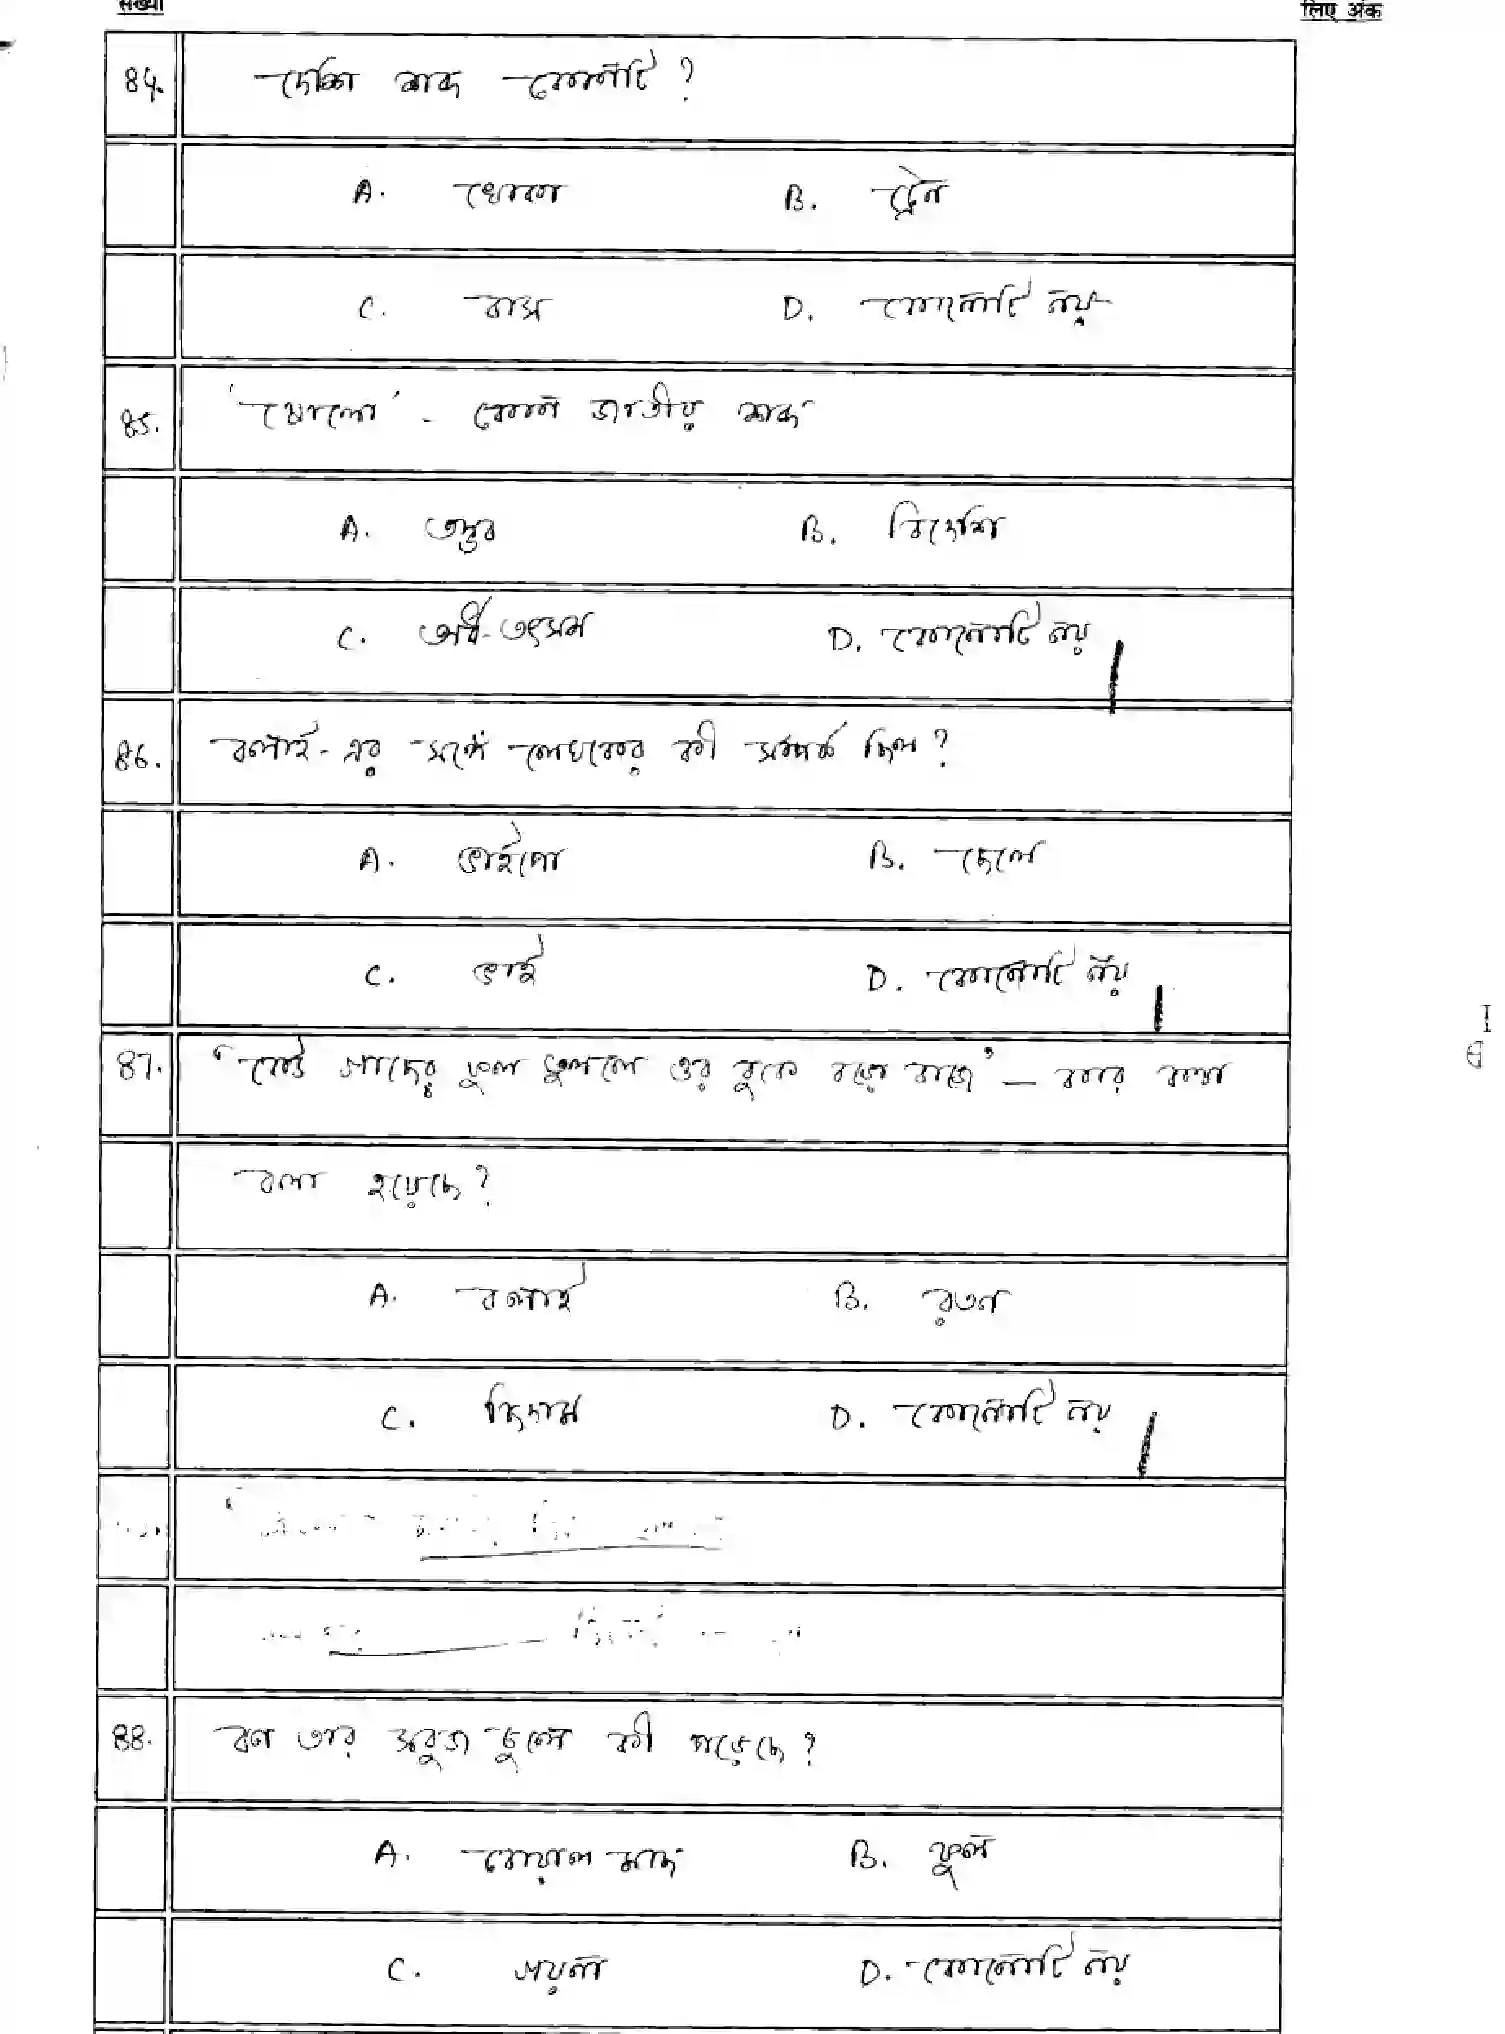 संख्या
लिए अंक
84. দেশি শব্দ কোনটি ?
A. খোকা B. ট্রেন
C. বাস D. কোনোটি নয়
85. কোন জাতীয় শব্দ
A. তদ্ভব B. বিদেশি
C. অর্ধ-তৎসম D. কোনোটি নয়
86. বলাই-এর সঙ্গে লেখকের কী সম্পর্ক ছিল ?
A. ভাইপো B. ছেলে
C. ভাই D. কোনোটি নয়
87. 'কেউ গাছের ফুল তুললে ওর বুকে বড়ো বাজে' – কার কথা
বলা হয়েছে ?
A. বলাই B. রতন
C. ছিদাম D. কোনোটি নয়
88. বন তার সবুজ চুলে কী পড়েছে ?
A. বোয়াল মাছ B. ফুল
C. গয়না D. কোনোটি নয়